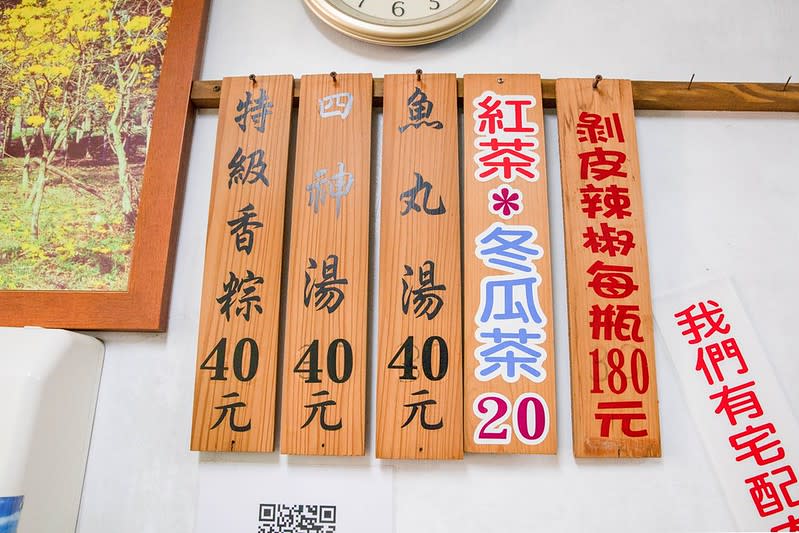 特級香粽40元
四神湯40元
魚丸湯40元
紅茶*冬瓜茶20
剝皮辣椒每瓶180元
我們有宅配
6